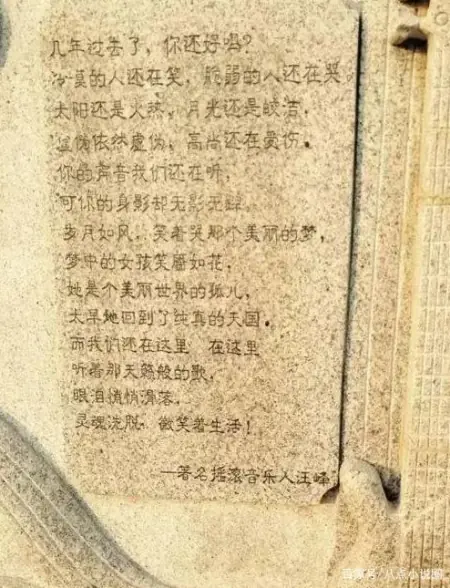 几年过去了，你还好吗？
冷漠的人还在笑，脆弱的人还在哭
太阳还是火热，月光还是皎洁，
虚伪依然虚伪，高尚还在负伤。
你的声音我们还在听，
可你的身影却无影无踪。
岁月如风，笑着哭那个美丽的梦，
梦中的女孩笑靥如花，
她是个美丽世界的孤儿，
太早她回到了纯真的天国。
而我们还在这里 在这里
听着那天籁般的歌，
眼泪悄悄滑落，
灵魂洗脱，微笑着生活！
—著名摇滚音乐人汪峰
百家号/八点小说圈